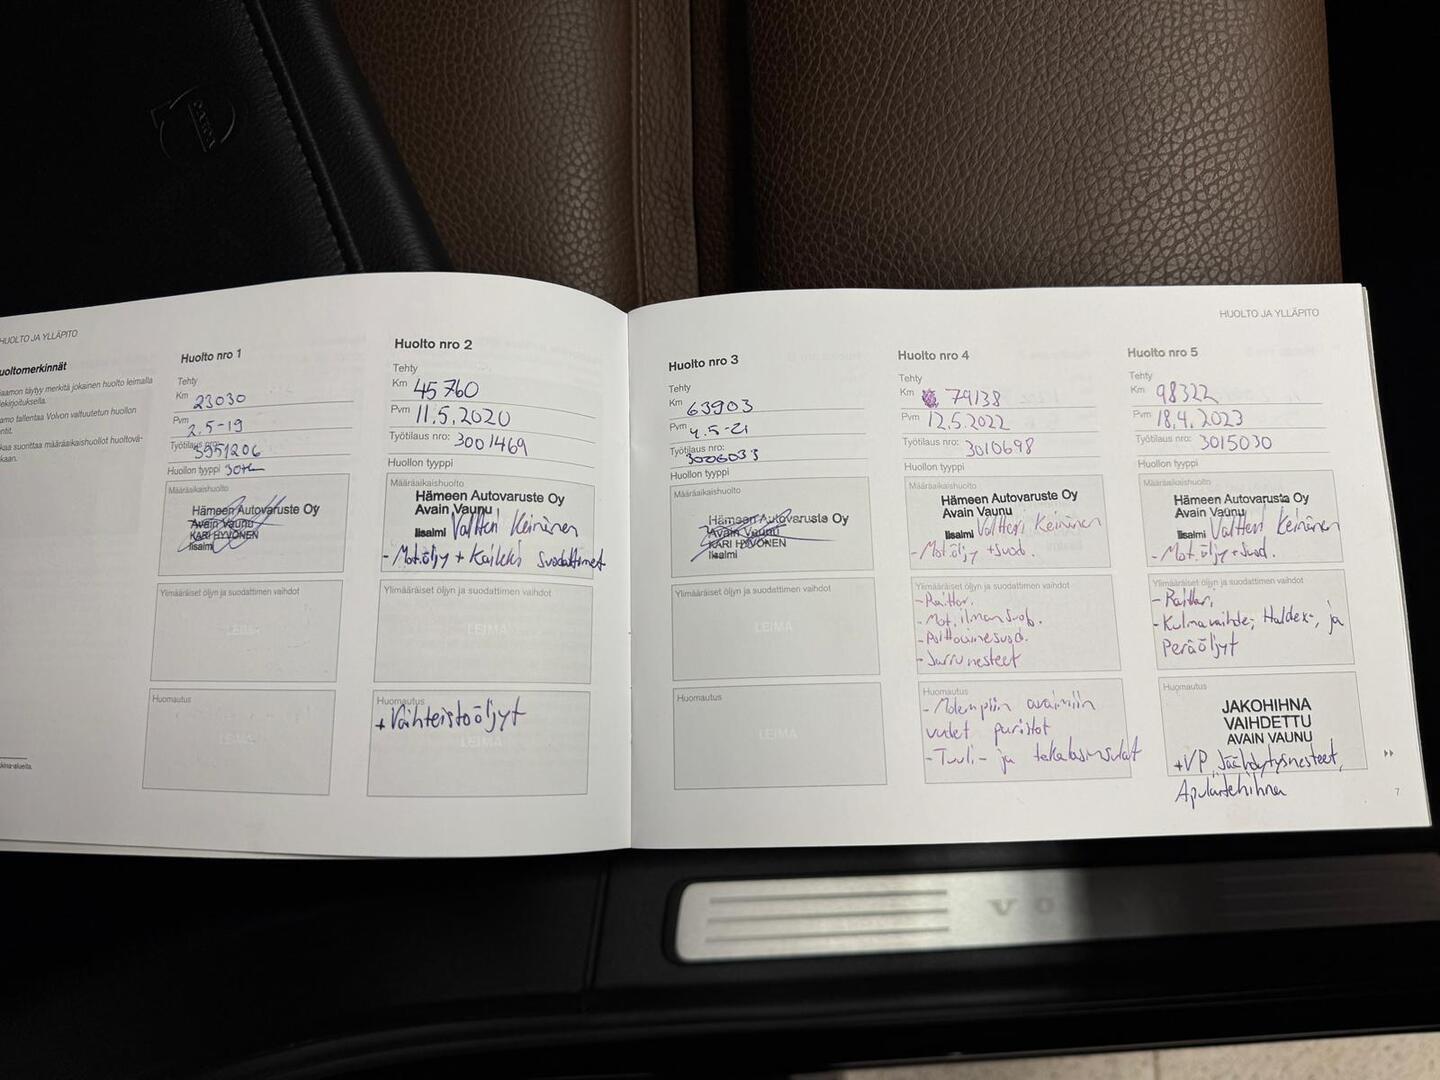 VOLVO
HUOLTO JA YLLÄPITO
uoltomerkinnät
aamon täytyy merkitä jokainen huolto leimalla
ekirjoituksella.
amo tallentaa Volvon valtuutetun huollon
kaa suorittaa määräaikaishuollot huoltovä-
kaan.
Huolto nro 1
Tehty
Km 23030
Pvm 2.5-19
Työtilaus nro:
Huollon tyyppi
Hämeen Autovaruste Oy
Avain Vaunu
KARI HYVÖNEN
Iisalmi
Ylimääräiset öljyn ja suodattimen vaihdot
LEIMA
Huomautus
LEIMA
Huolto nro 2
Tehty
Km 45760
Pvm 11.5.2020
Työtilaus nro: 3001469
Huollon tyyppi
Määräaikaishuolto
Hämeen Autovaruste Oy
Avain Vaunu
Iisalmi Valtteri Keininen
- Mot.öljy + Kaikki suodattimet
Ylimääräiset öljyn ja suodattimen vaihdot
LEIMA
Huomautus
+ Vaihteistoöljyt
LEIMA
Huolto nro 3
Tehty
Km 63903
Pvm 4.5-21
Työtilaus nro:
3006033
Huollon tyyppi
Määräaikaishuolto
Hämeen Autovaruste Oy
Avain Vaunu
KARI HYVÖNEN
Iisalmi
Ylimääräiset öljyn ja suodattimen vaihdot
LEIMA
Huomautus
LEIMA
HUOLTO JA YLLÄPITO
Huolto nro 4
Tehty
Km 79138
Pvm 12.5.2022
Työtilaus nro: 3010698
Huollon tyyppi
Määräaikaishuolto
Hämeen Autovaruste Oy
Avain Vaunu
Iisalmi Valtteri Keininen
- Mot.öljy + suod.
Ylimääräiset öljyn ja suodattimen vaihdot
- Raitter.
- Mot.ilmansuod.
- Polttoainesuod.
- Jarrunesteet
Huomautus
- Molempiin avaimiin
uudet paristot
- Tuuli- ja takalasinsulat
Huolto nro 5
Tehty
Km 98322
Pvm 18.4.2023
Työtilaus nro: 3015030
Huollon tyyppi
Määräaikaishuolto
Hämeen Autovaruste Oy
Avain Vaunu
Iisalmi Valtteri Keininen
- Mot.öljy + suod.
Ylimääräiset öljyn ja suodattimen vaihdot
- Raitter.
- Kulmavaihde-, Haldex-, ja
Peräöljyt
Huomautus
JAKOHIHNA
VAIHDETTU
AVAIN VAUNU
+VP, Jäähdytysnesteet,
Apulaitehihna
7
VO